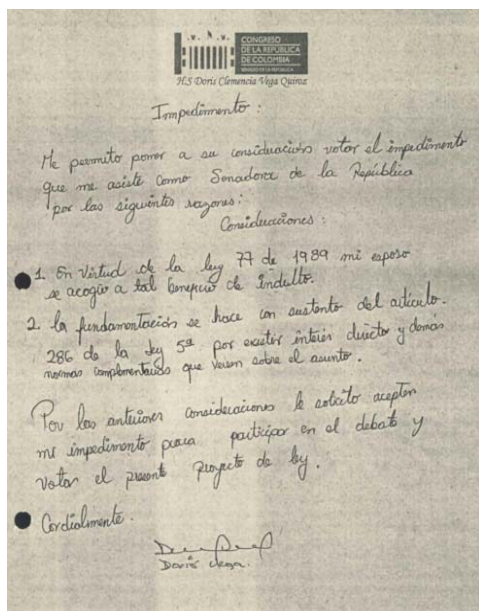 CONGRESO
DE LA REPÚBLICA
DE COLOMBIA
H.S Doris Clemencia Vega Quiroz
Impedimento :
Me permito poner a su consideración votar el impedimento
que me asiste como Senadora de la República
por las siguientes razones:
Consideraciones :
1. En virtud de la ley 77 de 1989 mi esposo
se acogió a tal beneficio de indulto.
2. la fundamentación se hace con sustento del artículo.
286 de la ley 5ª por existir interés directo y demás
normas complementarias que versen sobre el asunto.
Por las anteriores consideraciones le solicito acepten
mi impedimento para participar en el debate y
votar el presente proyecto de ley.
Cordialmente.
Doris Vega.